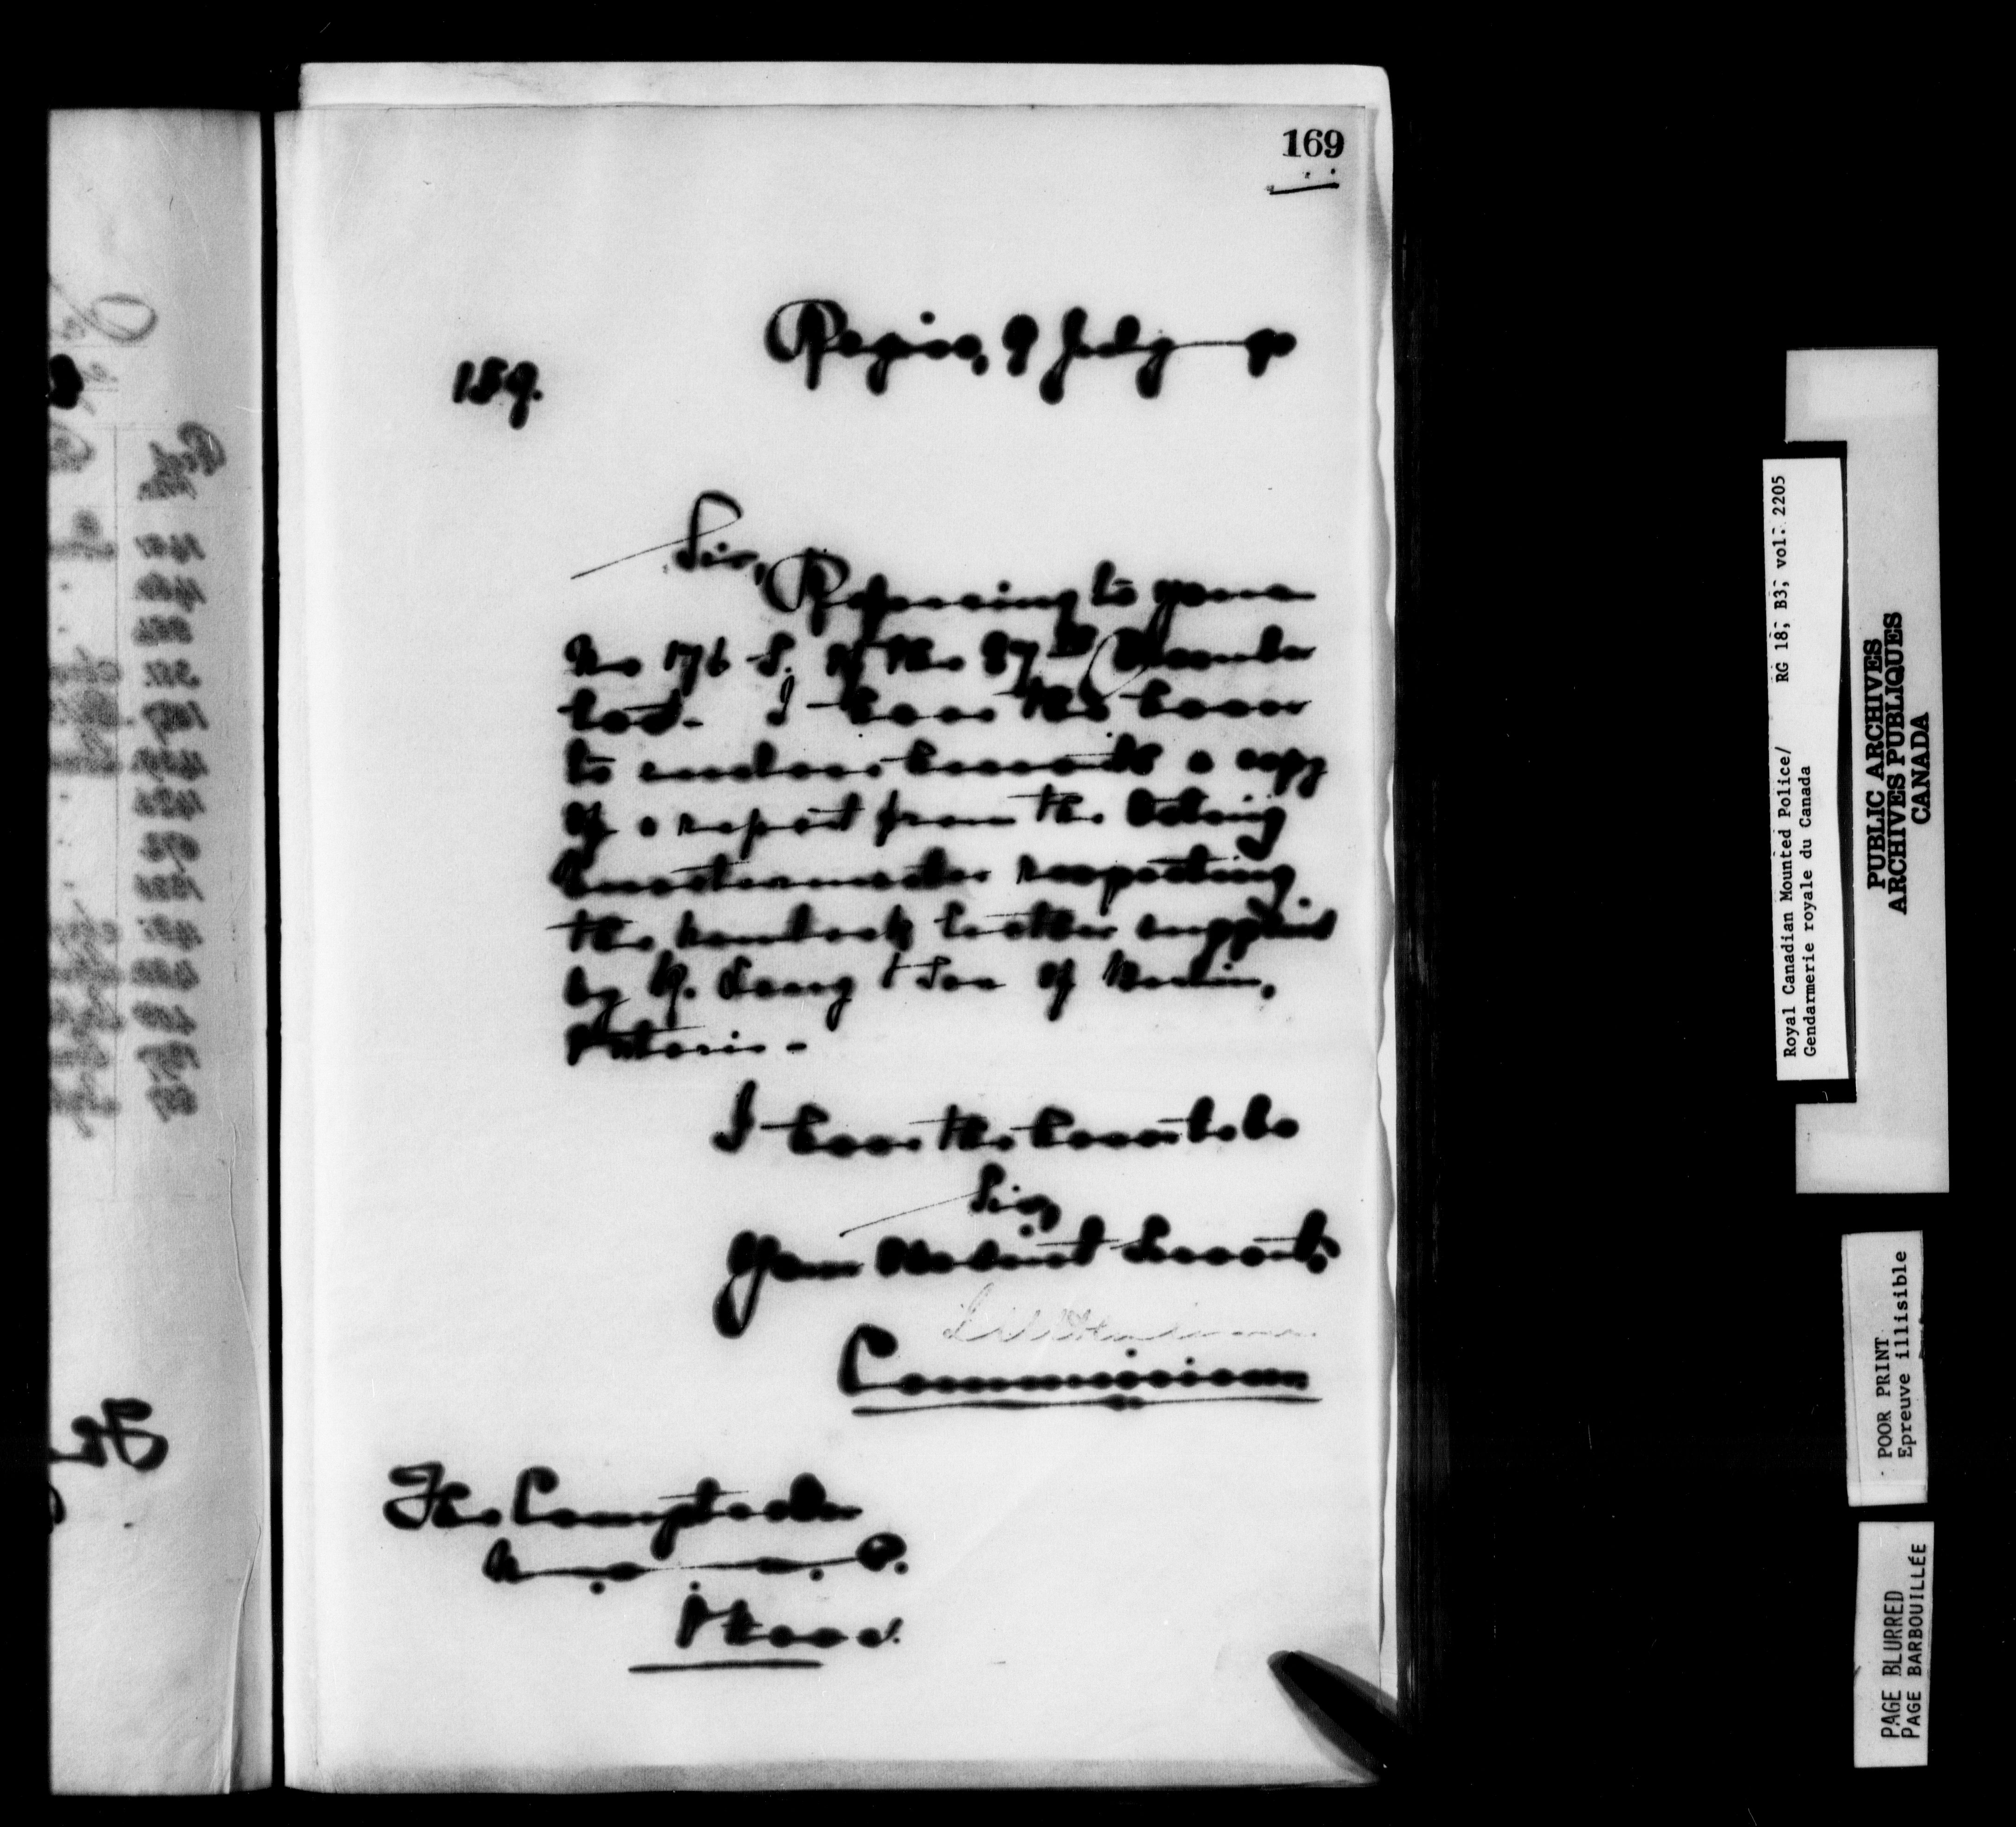 169
Regina, 9 July 90
189.
Sir,
Referring to yours
No 176 S. of the 27th December
last - I have the honor
to enclose herewith a copy
of a report from the Acting
Quartermaster respecting
the hemlock leather supplied
by R. Lang & Son of Berlin,
Ontario -
I have the honor to be
Sir,
Your Obedient Servant,
Commissioner
The Comptroller
N. W. M. P.
Ottawa.
Royal Canadian Mounted Police/ RG 18, B3, vol. 2205
Gendarmerie royale du Canada
PUBLIC ARCHIVES
ARCHIVES PUBLIQUES
CANADA
POOR PRINT
Epreuve illisible
PAGE BLURRED
PAGE BARBOUILLÉE